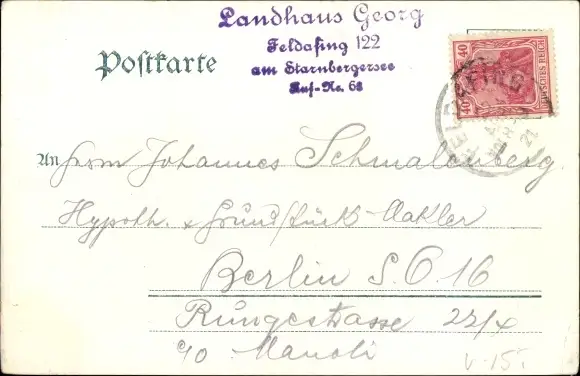 Landhaus Georg
Feldafing 122
am Starnbergersee
Ruf-Nr. 68
Postkarte
40 40
DEUTSCHES REICH
FELDAFING
21
An Herrn Johannes Schmalenberg.
Hypoth. & Grundstücks-Makler
Berlin S.O. 16
Rungestrasse 22/
c/o Manoli
V-15.